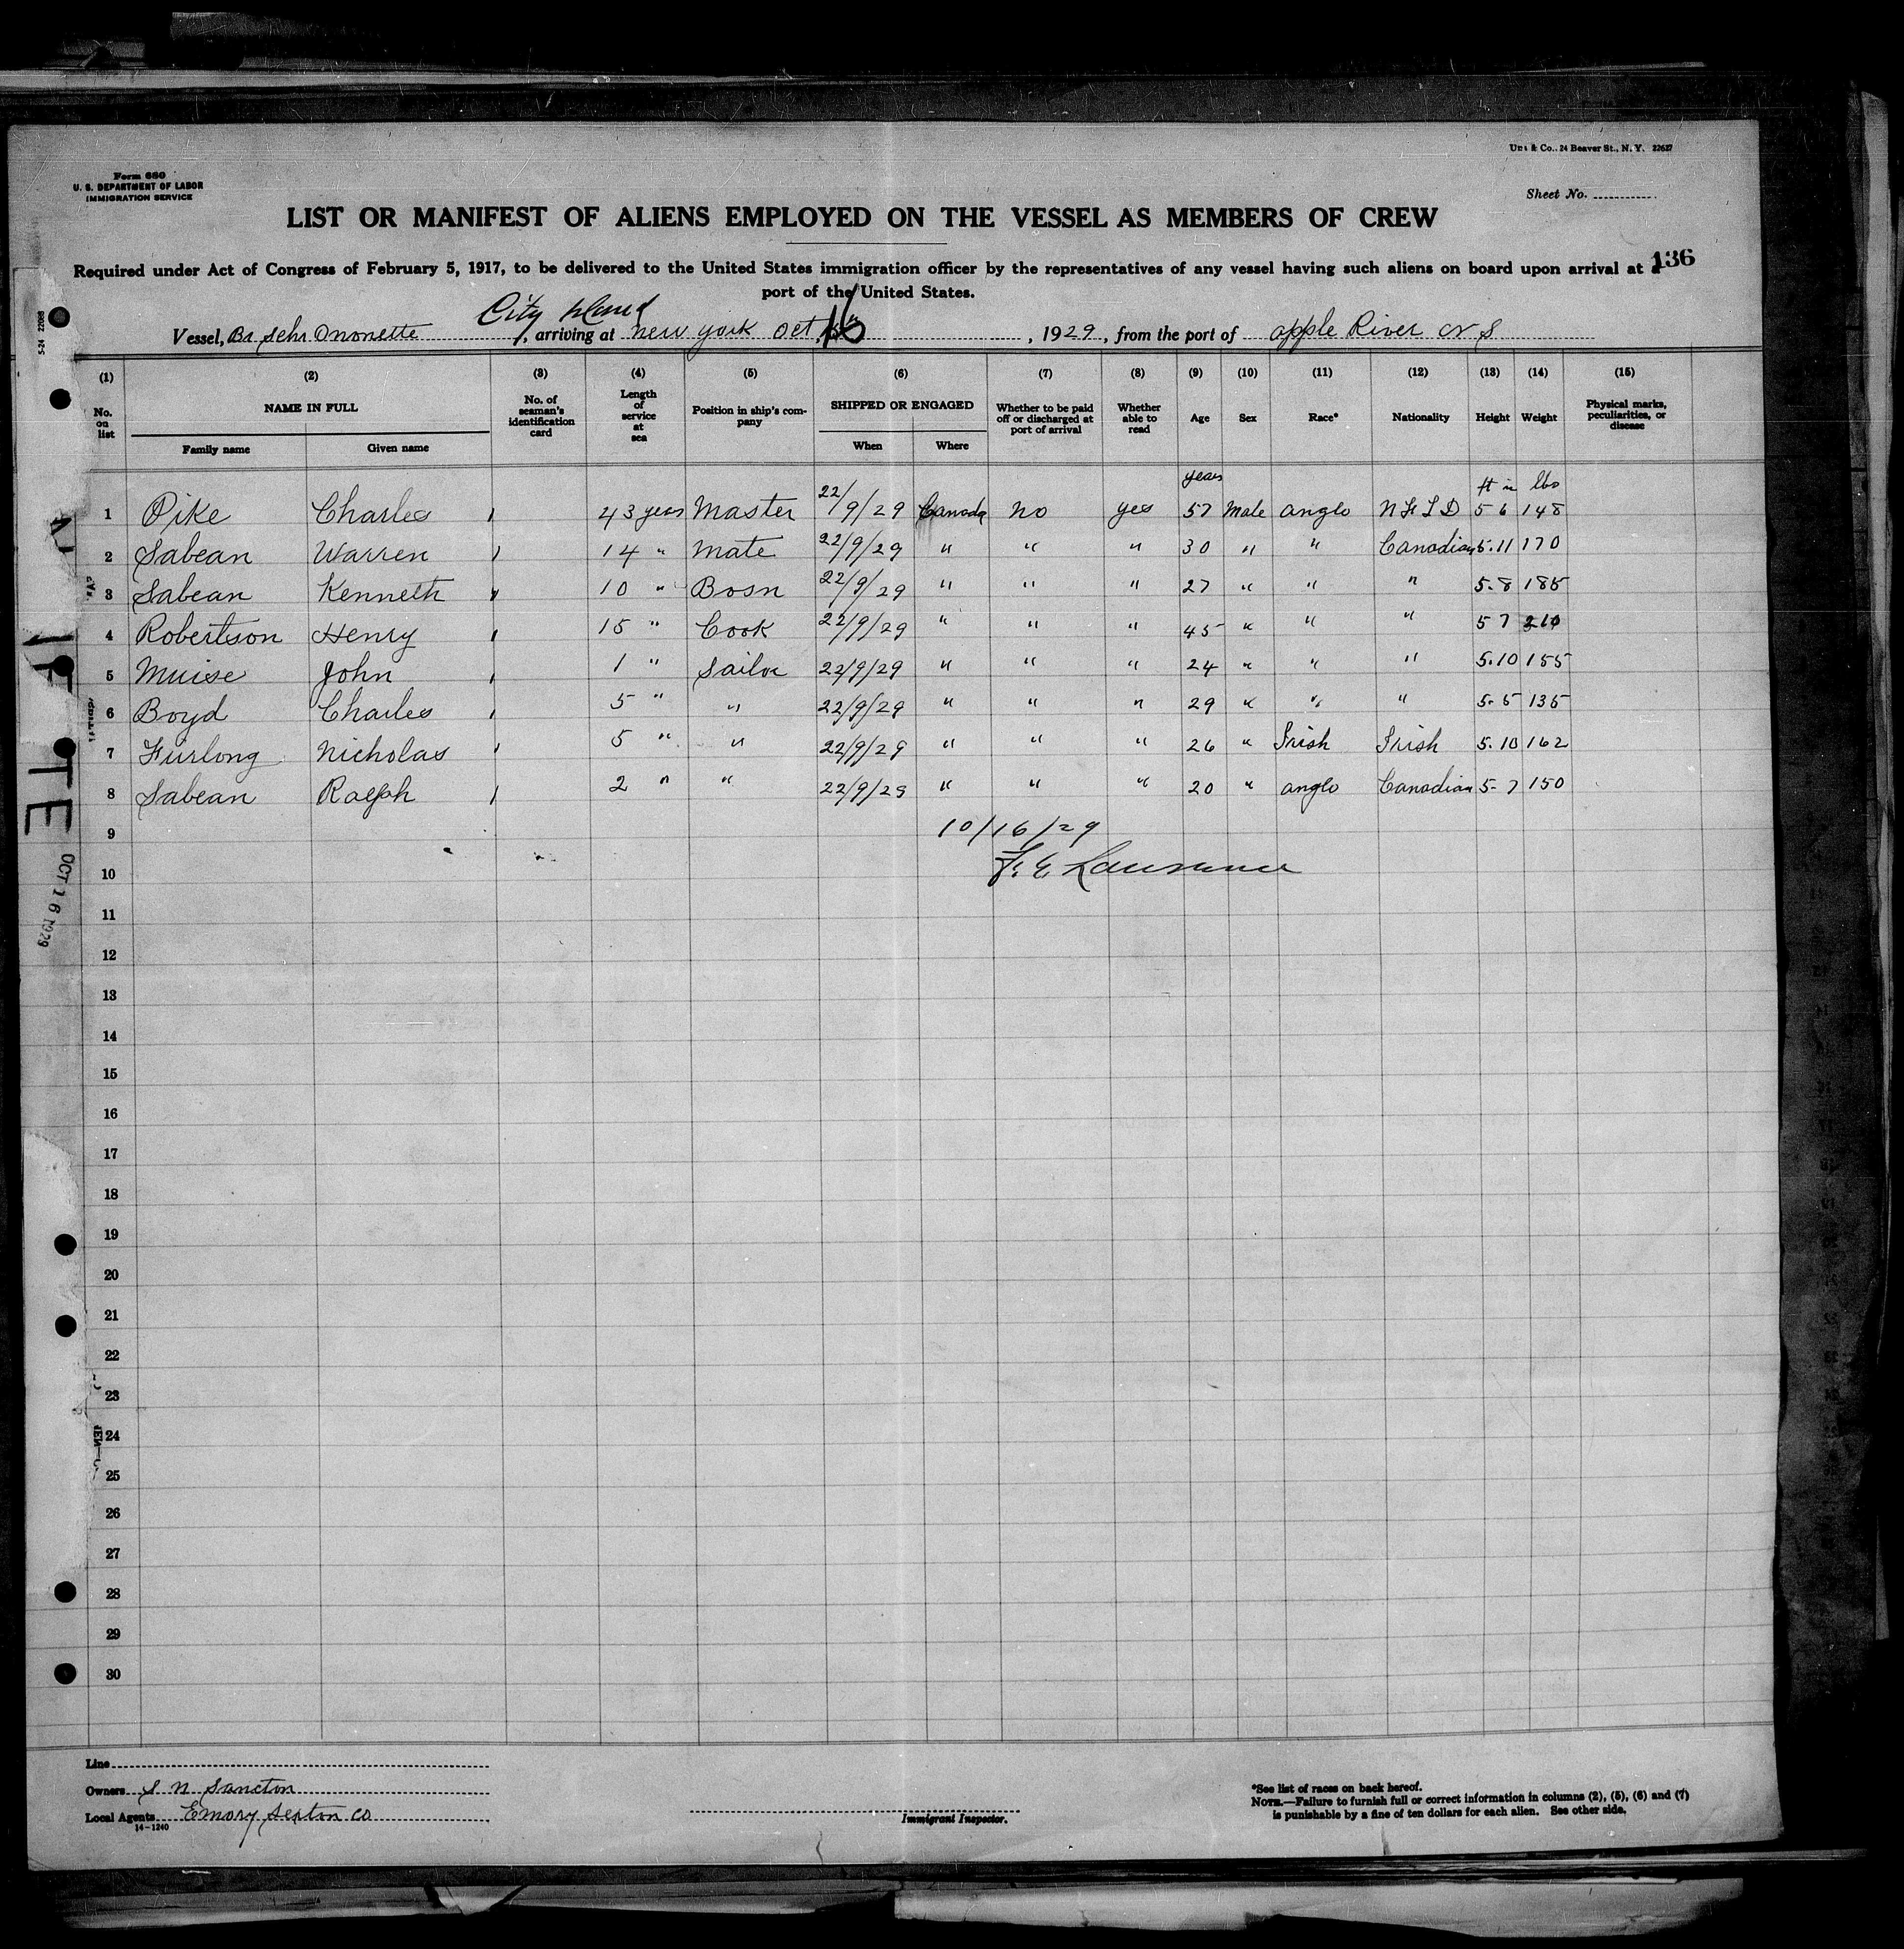 Uni & Co., 24 Beaver St., N. Y. 22627
Form 680
U. S. DEPARTMENT OF LABOR
IMMIGRATION SERVICE
Sheet No.
LIST OR MANIFEST OF ALIENS EMPLOYED ON THE VESSEL AS MEMBERS OF CREW
136
Required under Act of Congress of February 5, 1917, to be delivered to the United States immigration officer by the representatives of any vessel having such aliens on board upon arrival at a
port of the United States.
City Island
Vessel, Br Schr Ononette, arriving at New York Oct 16, 1929, from the port of Apple River N S
(1) (2) (3) (4) (5) (6) (7) (8) (9) (10) (11) (12) (13) (14) (15)
No. on list NAME IN FULL Family name Given name No. of seaman's identification card Length of service at sea Position in ship's company SHIPPED OR ENGAGED When Where Whether to be paid off or discharged at port of arrival Whether able to read Age Sex Race* Nationality Height Weight Physical marks, peculiarities, or disease
years ft in lbs
1 Pike Charles 43 years Master 22/9/29 Canada No yes 57 Male anglo N F L D 5 6 148
2 Sabean Warren 14 " Mate 22/9/29 " " " 30 " " Canadian 5.11 170
3 Sabean Kenneth 10 " Bosn 22/9/29 " " " 27 " " " 5.8 185
4 Robertson Henry 15 " Cook 22/9/29 " " " 45 " " " 5 7 210
5 Muise John 1 " Sailor 22/9/29 " " " 24 " " " 5.10 155
6 Boyd Charles 5 " " 22/9/29 " " " 29 " " " 5.5 135
7 Furlong Nicholas 5 " " 22/9/29 " " " 26 " Irish Irish 5.10 162
8 Sabean Ralph 2 " " 22/9/29 " " " 20 " anglo Canadian 5-7 150
9 10/16/29
10 F. E. Lawrence
11
12
13
14
15
16
17
18
19
20
21
22
23
24
25
26
27
28
29
30
OCT 16 1929
Line
Owners S N Sancton
Local Agents Emory Sexton Co
14-1240
Immigrant Inspector.
*See list of races on back hereof.
NOTE.—Failure to furnish full or correct information in columns (2), (5), (6) and (7)
is punishable by a fine of ten dollars for each alien. See other side.